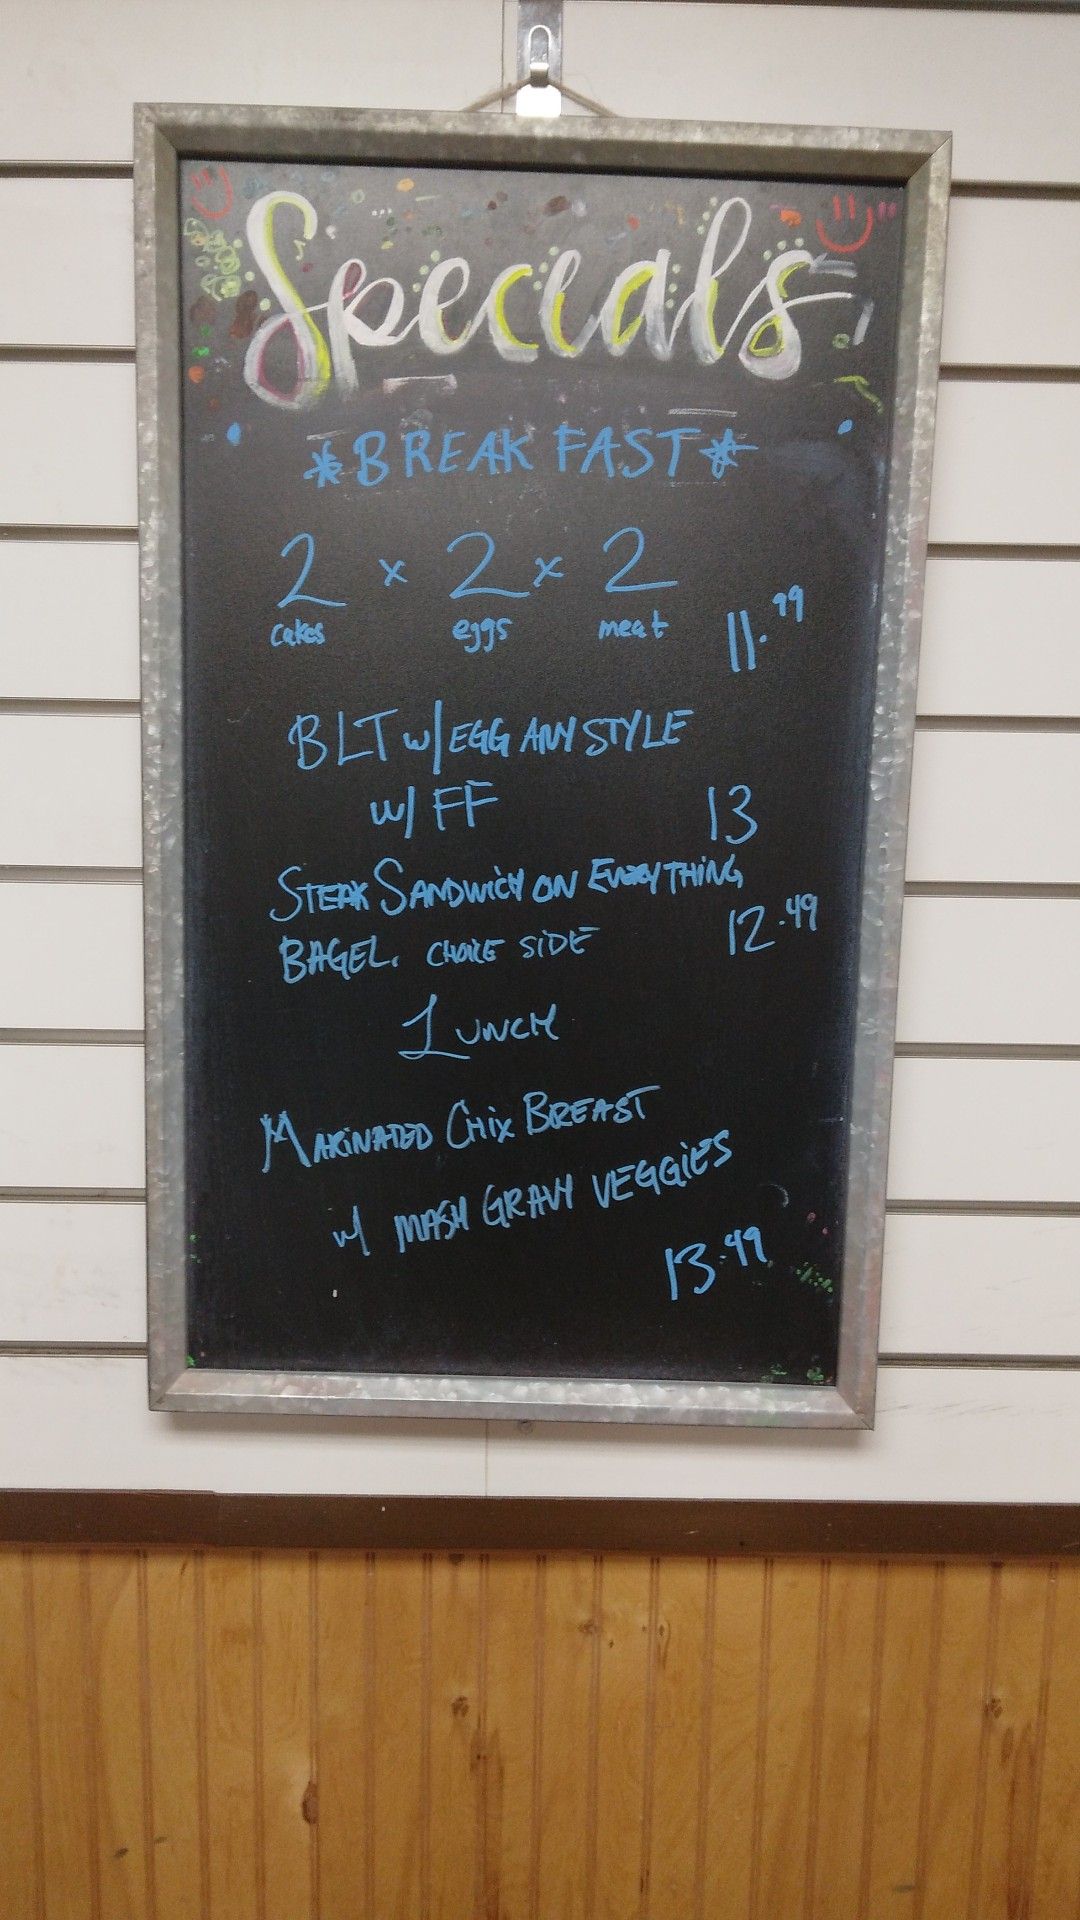 Specials
*BREAKFAST*
2 x 2 x 2
cakes eggs meat 11.99
BLT w/ EGG ANY STYLE
w/ FF 13
STEAK SANDWICH ON EVERYTHING
BAGEL. CHOICE SIDE 12.49
LUNCH
MARINATED CHIX BREAST
w/ MASH GRAVY VEGGIES
13.49